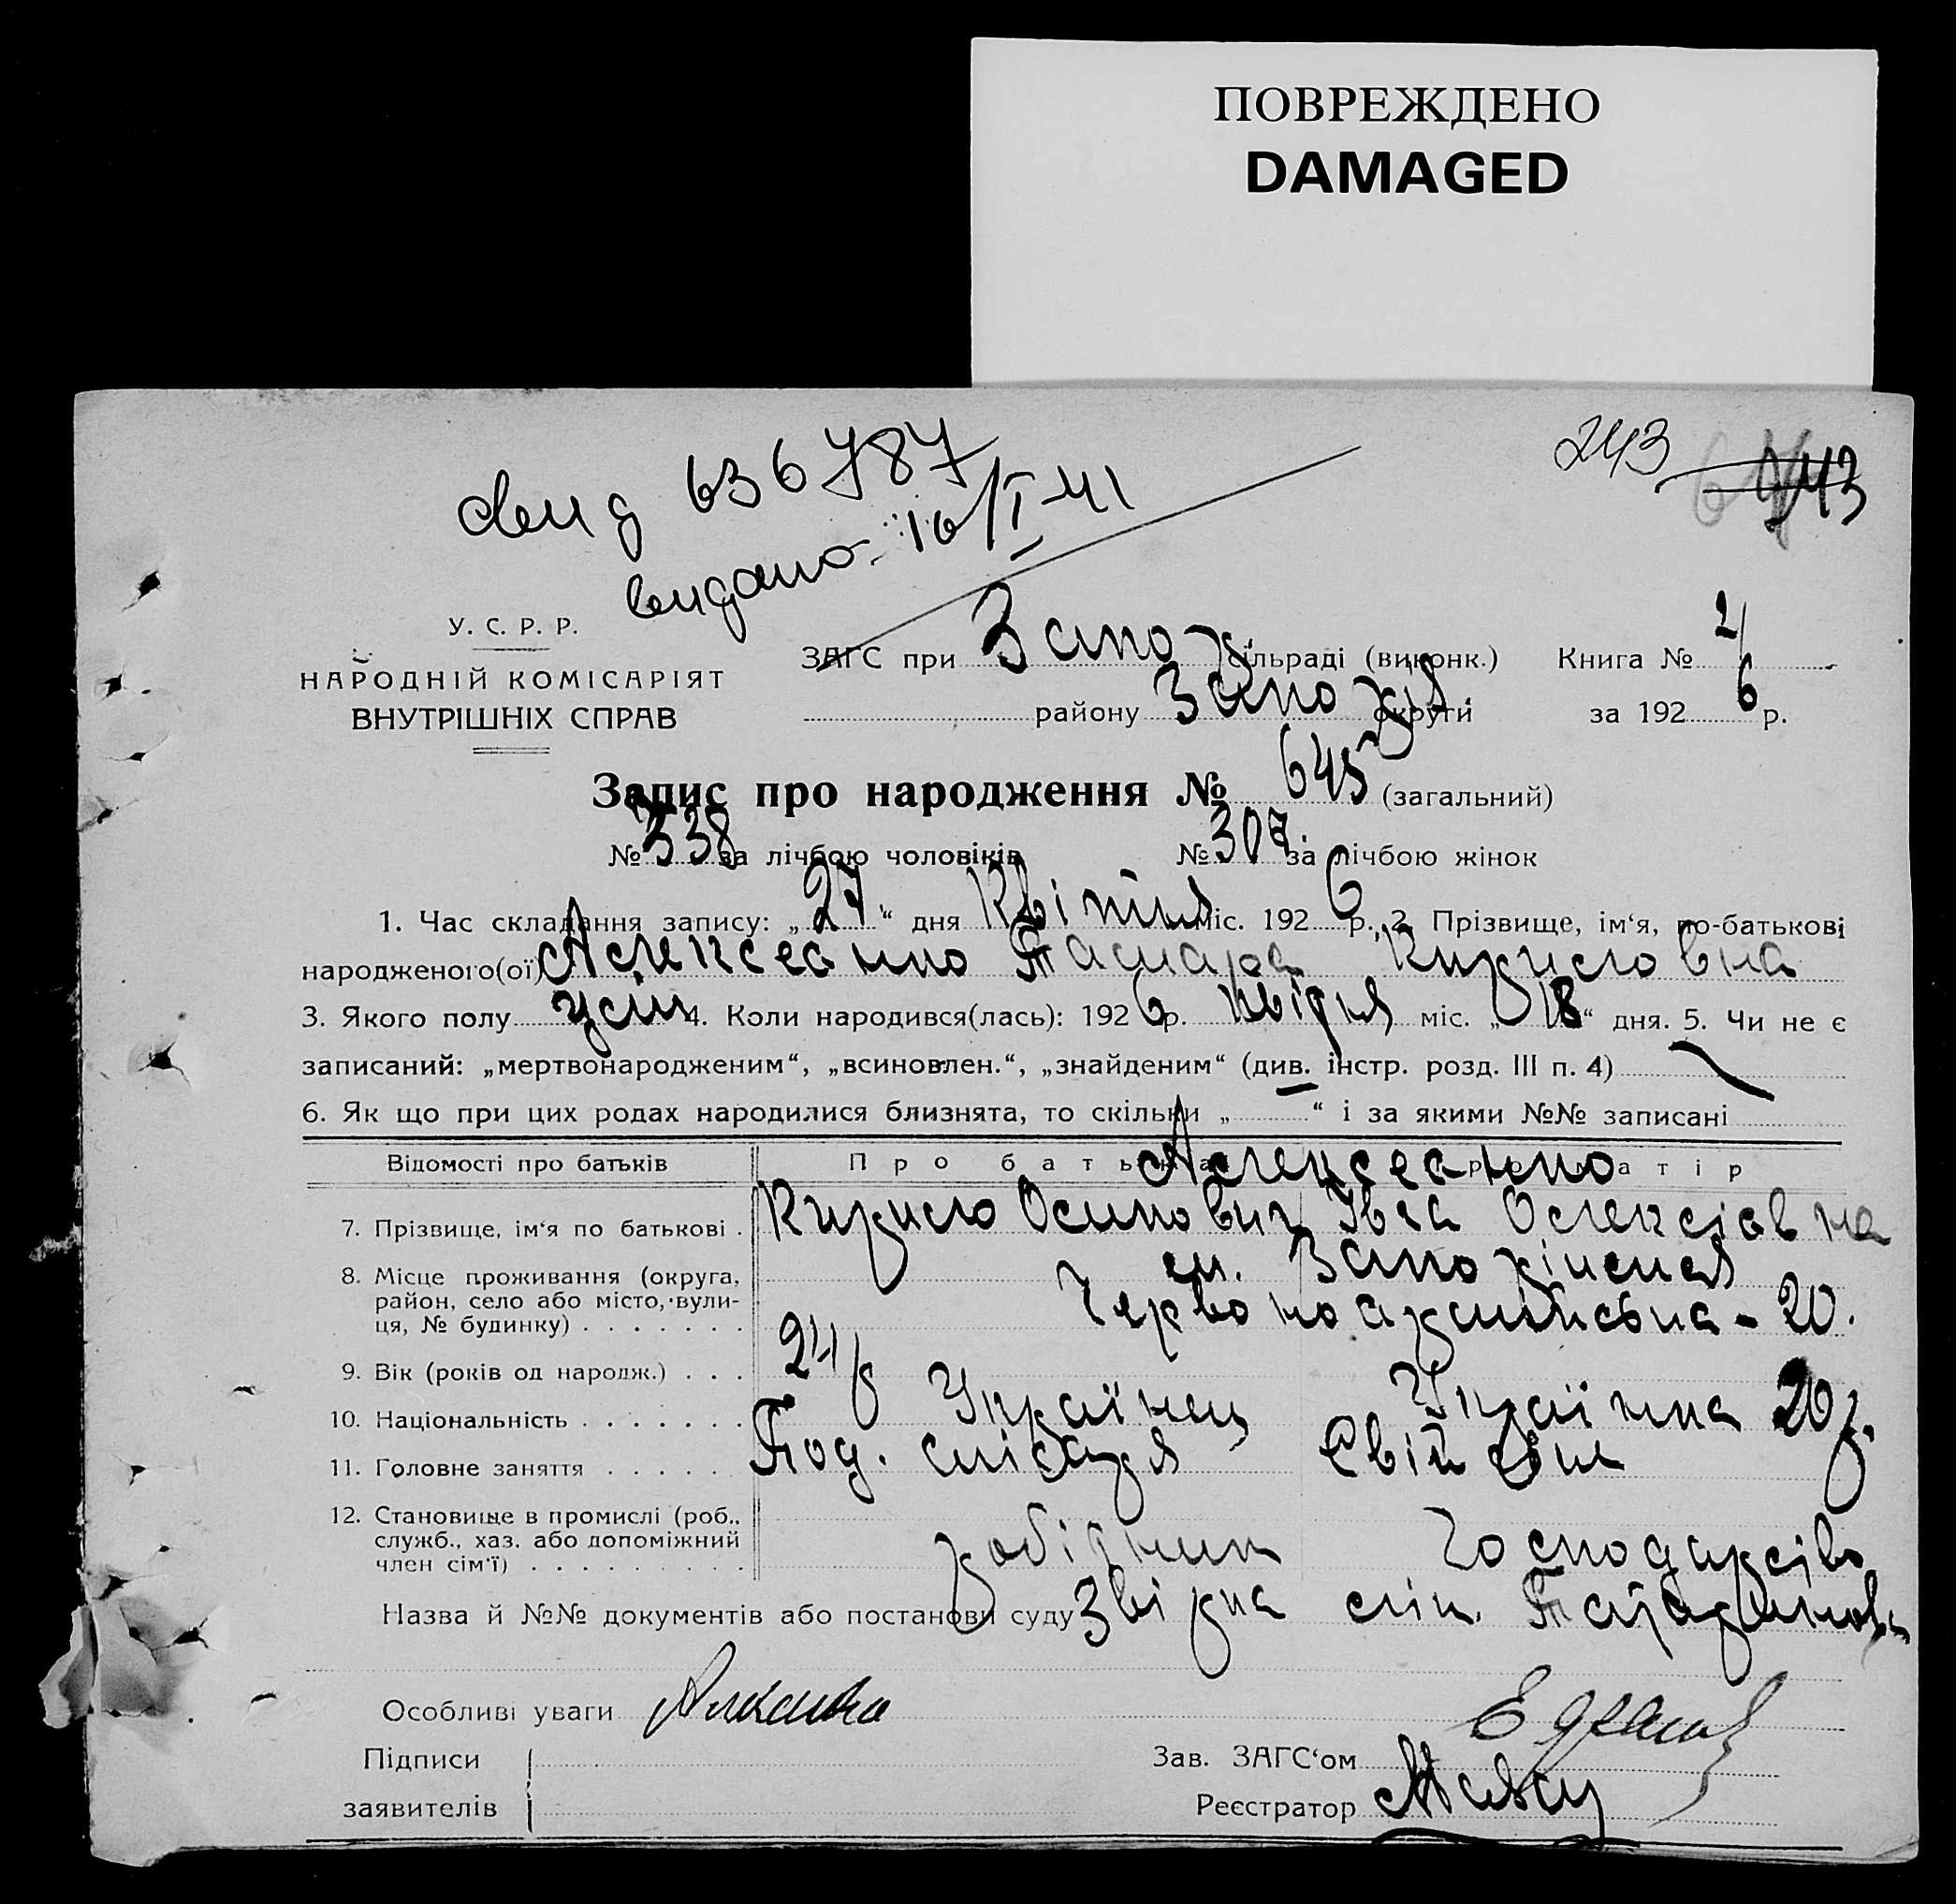 ПОВРЕЖДЕНО
DAMAGED
243 143
свид 636787
видано 16/I-41
У. С. Р. Р.
НАРОДНІЙ КОМІСАРІЯТ
ВНУТРІШНІХ СПРАВ
ЗАГС при Запоріж сільраді (виконк.) Книга № 2/
району Запоріж округи за 1926 р.
Запис про народження № 645 (загальний)
№ 338 за лічбою чоловіків № 307 за лічбою жінок
1. Час складання запису: „27“ дня Квітня міс. 1926 р. 2. Прізвище, ім‘я, по-батькові
народженого(ої) Алексеенко Тамара Кириловна
3. Якого полу жін 4. Коли народився(лась): 1926 р. квітня міс. „18“ дня. 5. Чи не є
записаний: „мертвонародженим“, „всиновлен.“, „знайденим“ (див. інстр. розд. III п. 4)
6. Як що при цих родах народилися близнята, то скільки „ “ і за якими №№ записані
Відомості про батьків Про батька Про матір
Алексеенко
7. Прізвище, ім‘я по батькові . Кирило Осипович Івга Олексіовна
8. Місце проживання (округа, район, село або місто, вулиця, № будинку) . . . . . . . м. Запоріжжя
Червоноармійська - 20.
9. Вік (років од народж.) . . . 24 р 20 р.
10. Національність . . . . . . . Українец Українка
11. Головне заняття . . . . . Под. слюсаря Свій
12. Становище в промислі (роб., служб., хаз. або допоміжний член сім‘ї) . . . . . . . . . робітник господарство
Назва й №№ документів або постанови суду
Особливі уваги
Підписи
заявителів
Зав. ЗАГС‘ом
Реєстратор